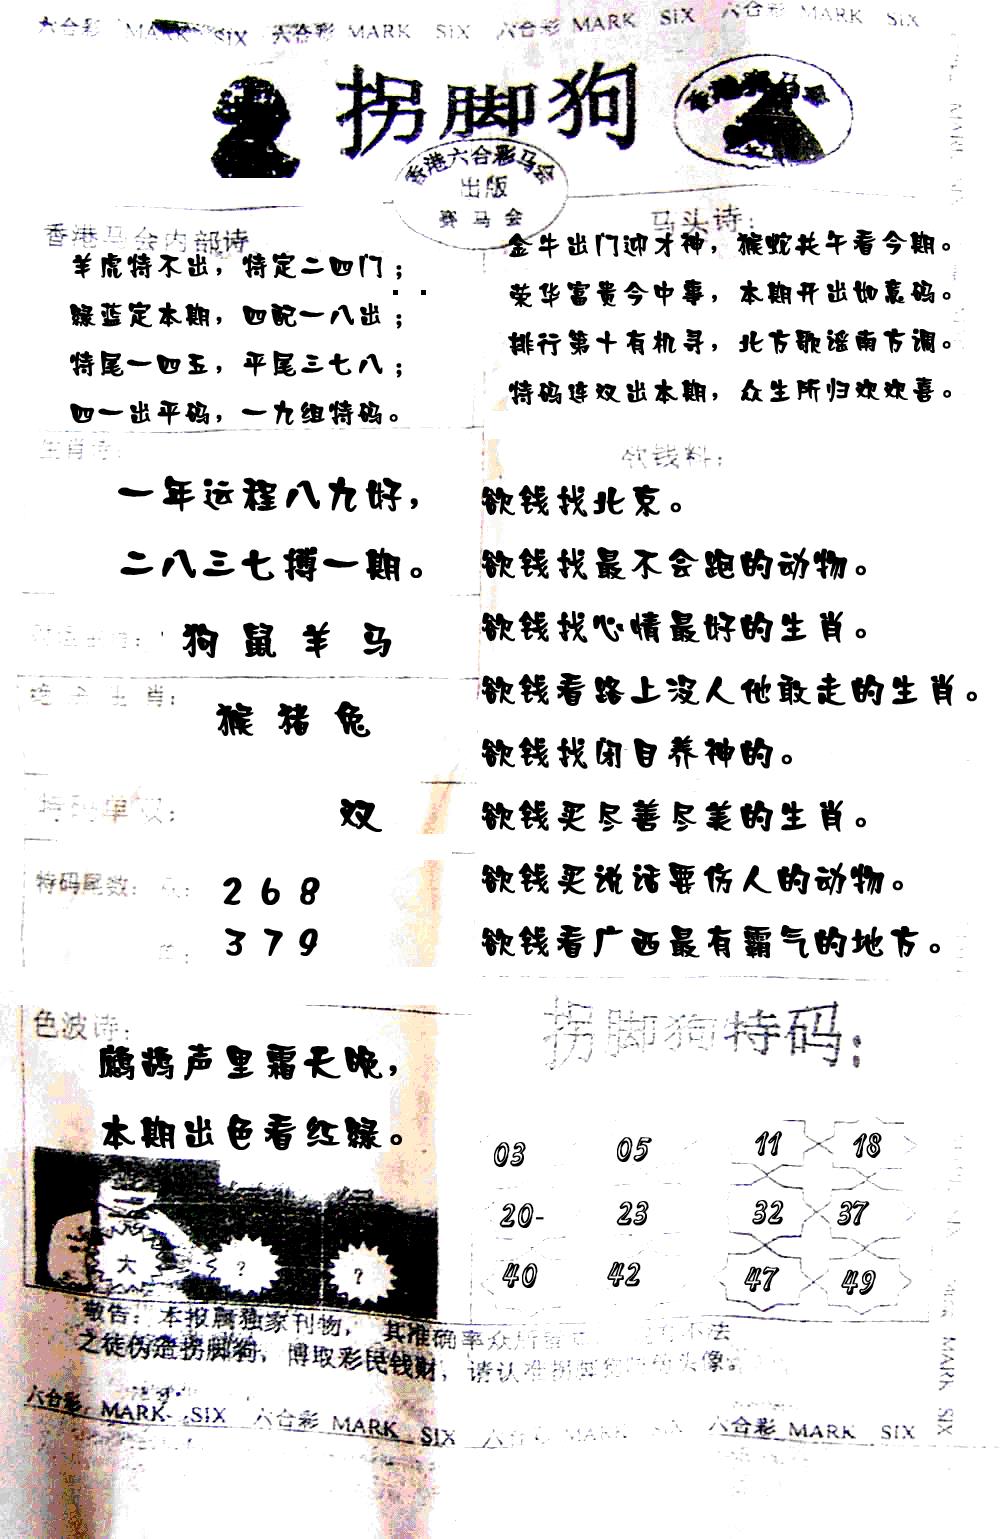 六合彩 MARK SIX 六合彩 MARK SIX 六合彩 MARK SIX 六合彩 MARK SIX
拐脚狗
香港六合彩马会
出版
赛马会
香港马会内部诗
羊虎特不出，特定二四门；
绿蓝定本期，四配一八出；
特尾一四五，平尾三七八；
四一出平码，一九组特码。
马头诗：
金牛出门迎才神，猴蛇共午看今期。
荣华富贵今中事，本期开出如意码。
排行第十有机寻，北方歌谣南方调。
特码连双出本期，众生所归欢欢喜。
生肖诗：
一年运程八九好，
二八三七搏一期。
狗鼠羊马
生肖：
猴猪兔
特码单双：
双
特码尾数：
268
379
欲钱料：
欲钱找北京。
欲钱找最不会跑的动物。
欲钱找心情最好的生肖。
欲钱看路上没人他敢走的生肖。
欲钱找闭目养神的。
欲钱买尽善尽美的生肖。
欲钱买说话要伤人的动物。
欲钱看广西最有霸气的地方。
色波诗：
鹧鸪声里霜天晚，
本期出色看红绿。
大 ? ?
拐脚狗特码：
03 05 11 18
20- 23 32 37
40 42 47 49
敬告：本报属独家刊物，其准确率众所 不法
之徒伪造拐脚狗，博取彩民钱财，请认准拐脚 头像
六合彩 MARK SIX 六合彩 MARK SIX 六合彩 MARK SIX 六合彩 MARK SIX
MARK SIX